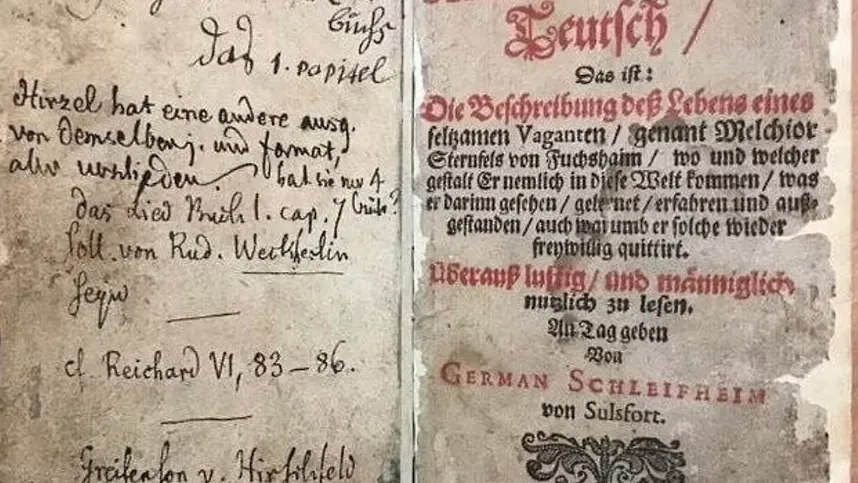 buchs
Das 1. capitel
Hirzel hat eine andere ausg.
von demselben j. und format,
aber verschieden. hat sie nur 4
bücher?
das Lied Buch 1. cap. 7
soll von Rud. Weckherlin
seyn
cf. Reichard VI, 83–86.
Greifenson v. Hirschfeld
Teutsch /
Das ist:
Die Beschreibung deß Lebens eines
seltzamen Vaganten / genant Melchior
Sternfels von Fuchshaim / wo und welcher
gestalt Er nemlich in diese Welt kommen / was
er darinn gesehen / gelernet / erfahren und auß-
gestanden / auch warumb er solche wieder
freywillig quittirt.
Überauß lustig / und männiglich
nutzlich zu lesen.
An Tag geben
Von
GERMAN SCHLEIFHEIM
von Sulsfort.